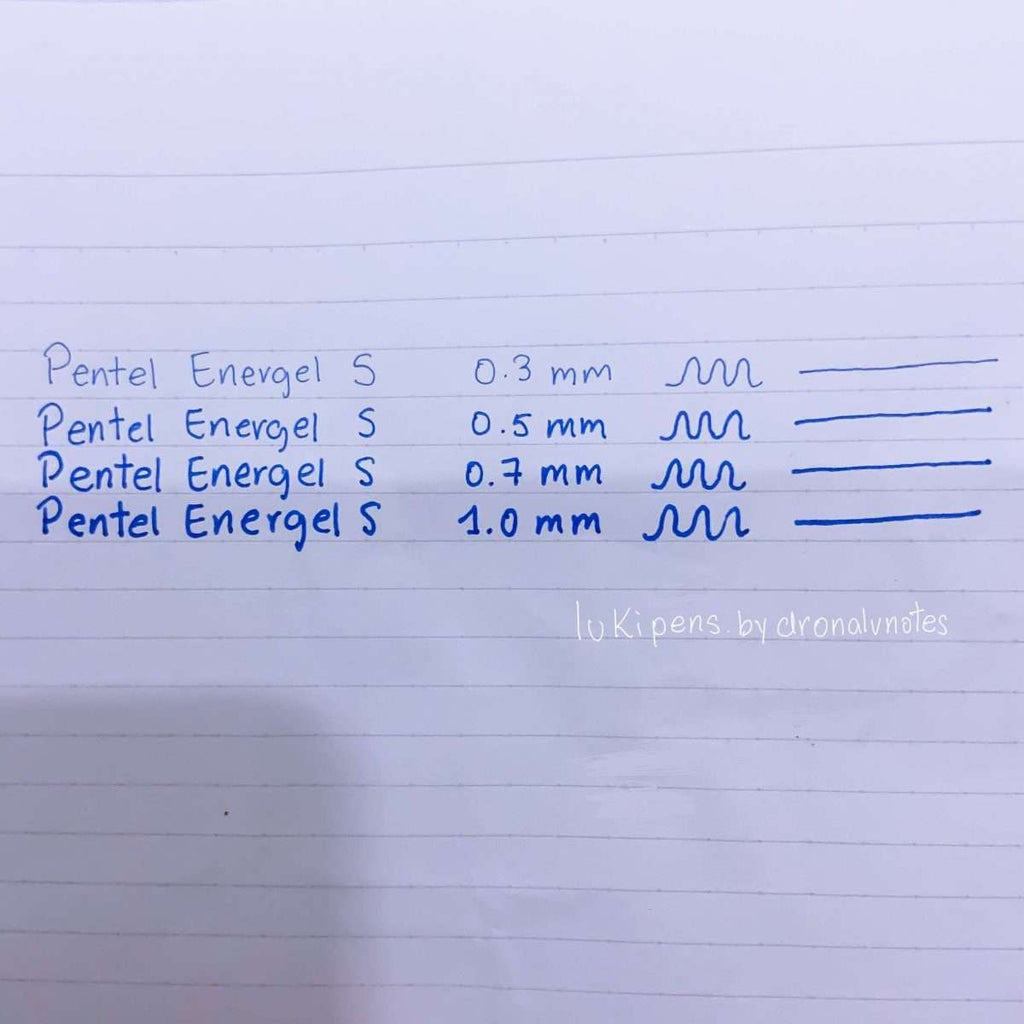 Pentel Energel S 0.3 mm
Pentel Energel S 0.5 mm
Pentel Energel S 0.7 mm
Pentel Energel S 1.0 mm
lukipens.by dronalvnotes